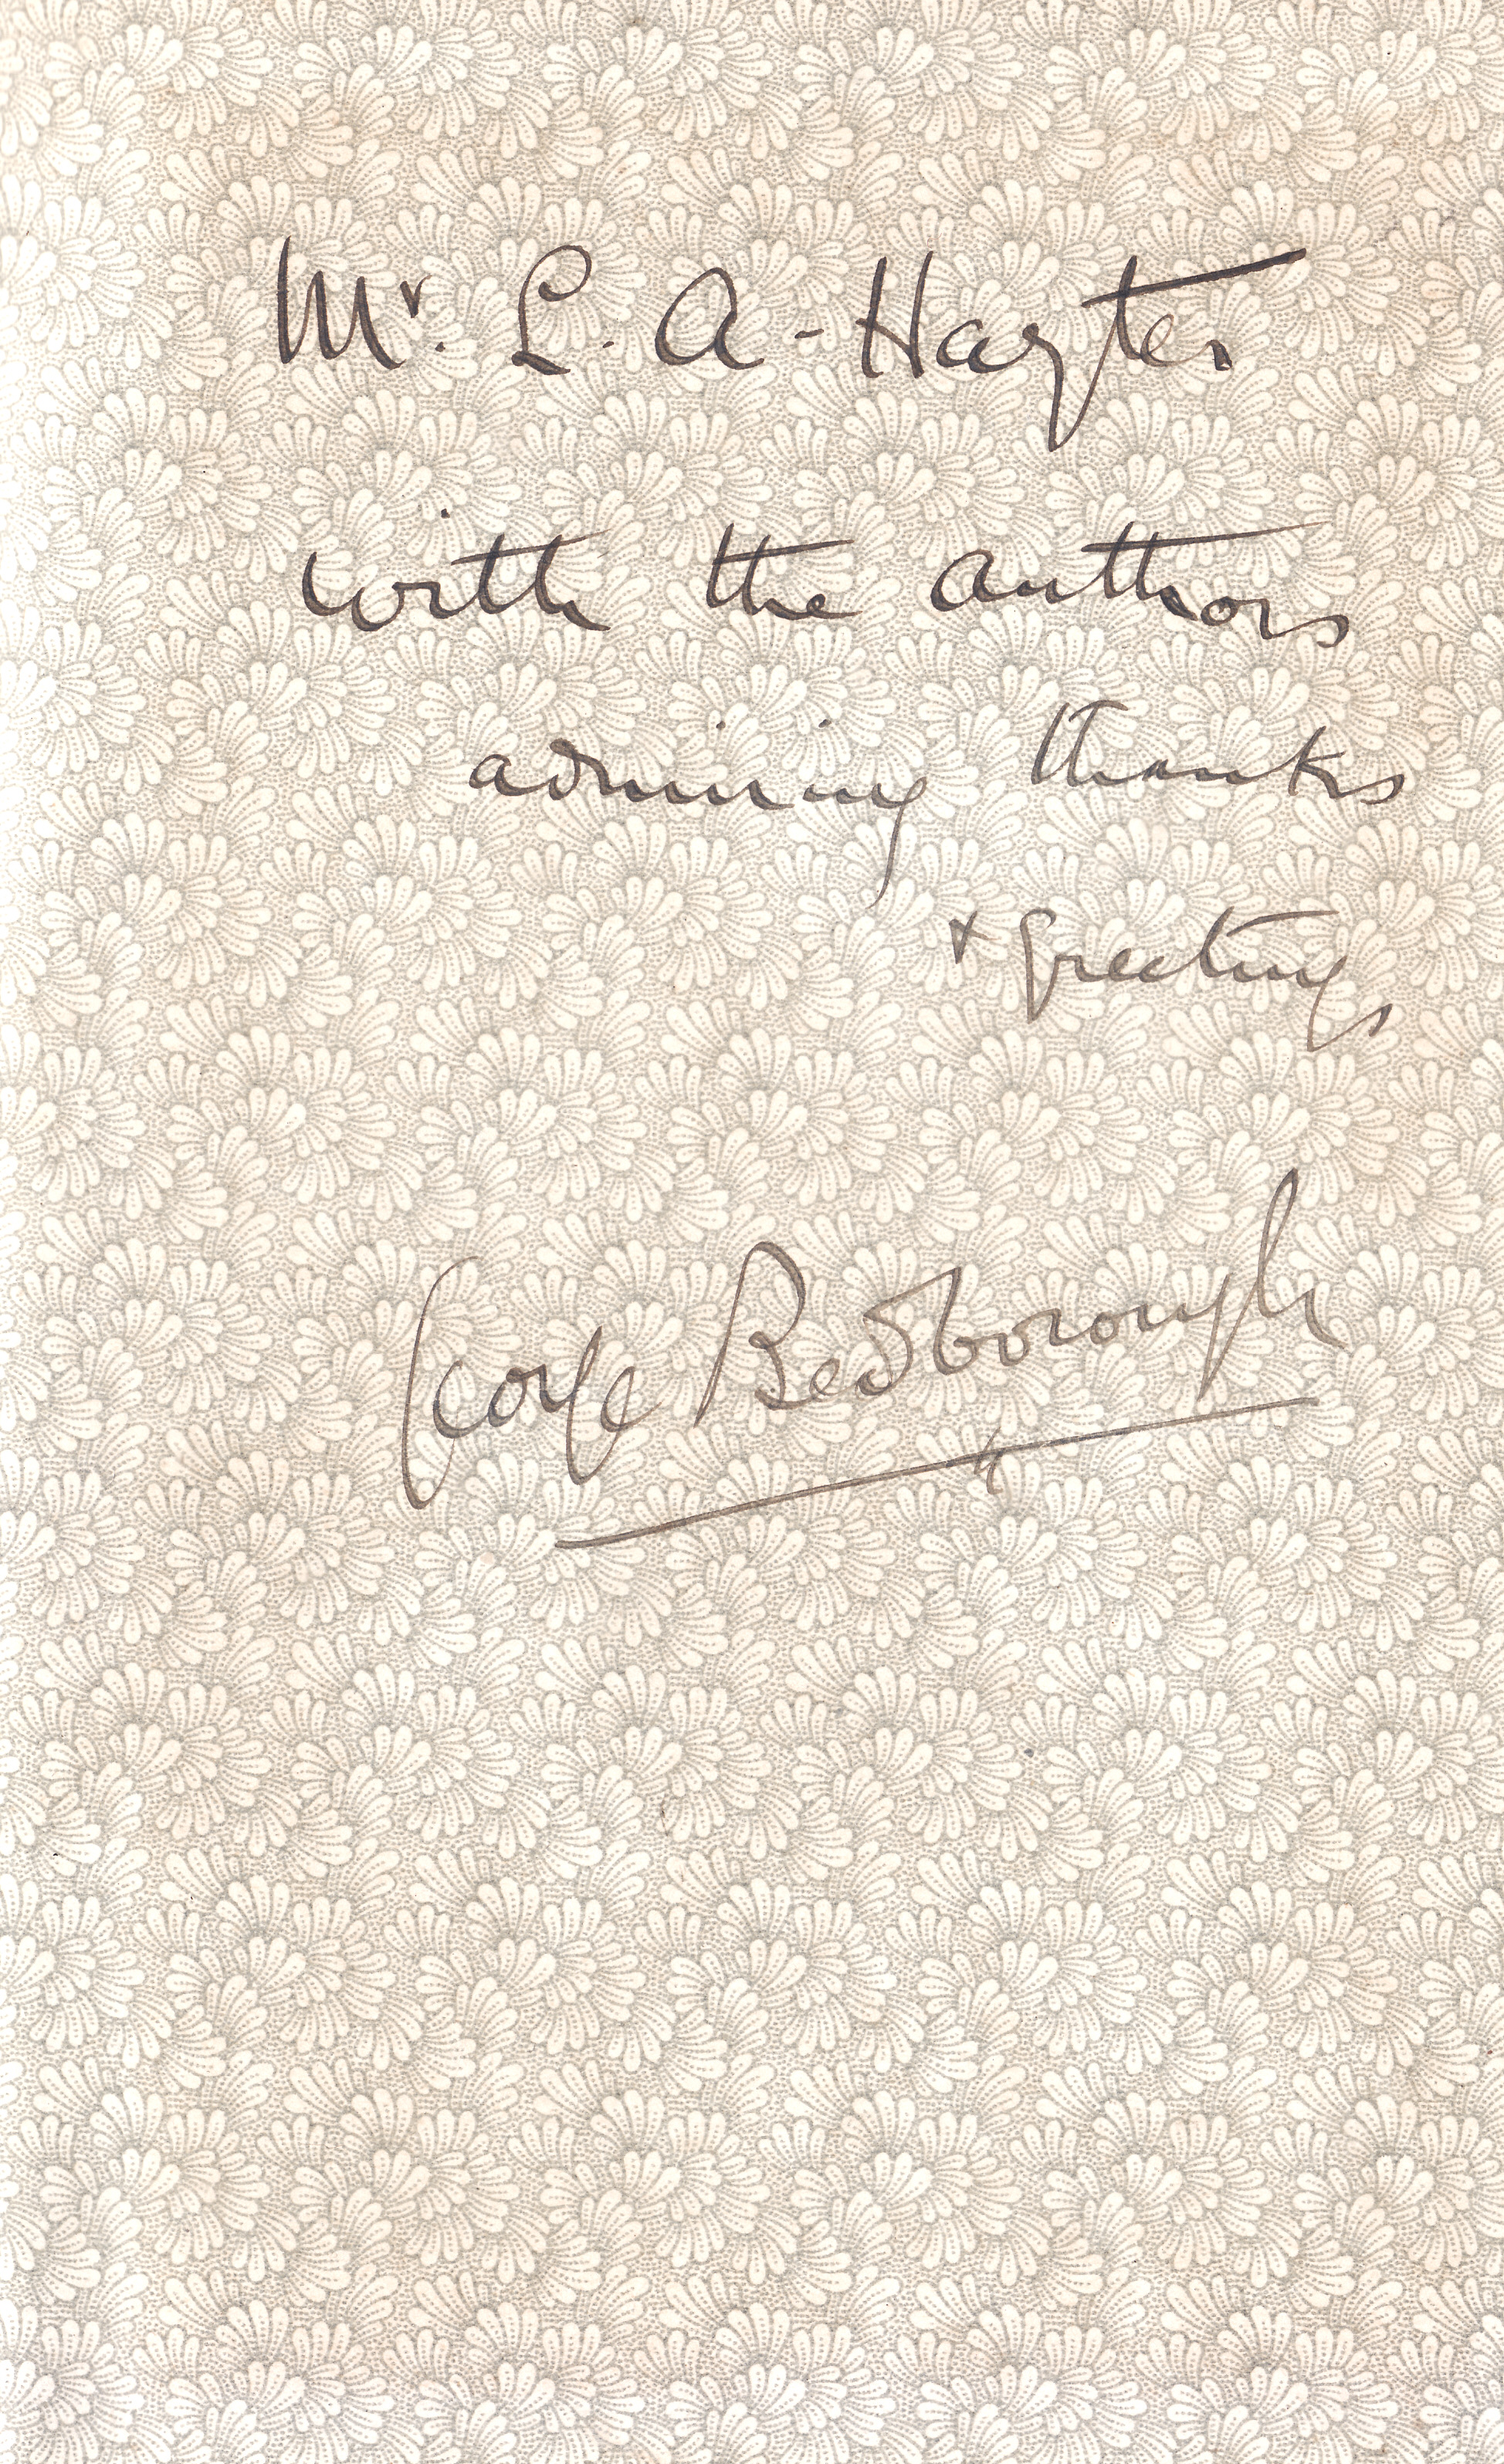 Mr. L. A. Hayter
with the authors
admiring thanks
+ greetings
George Bedborough